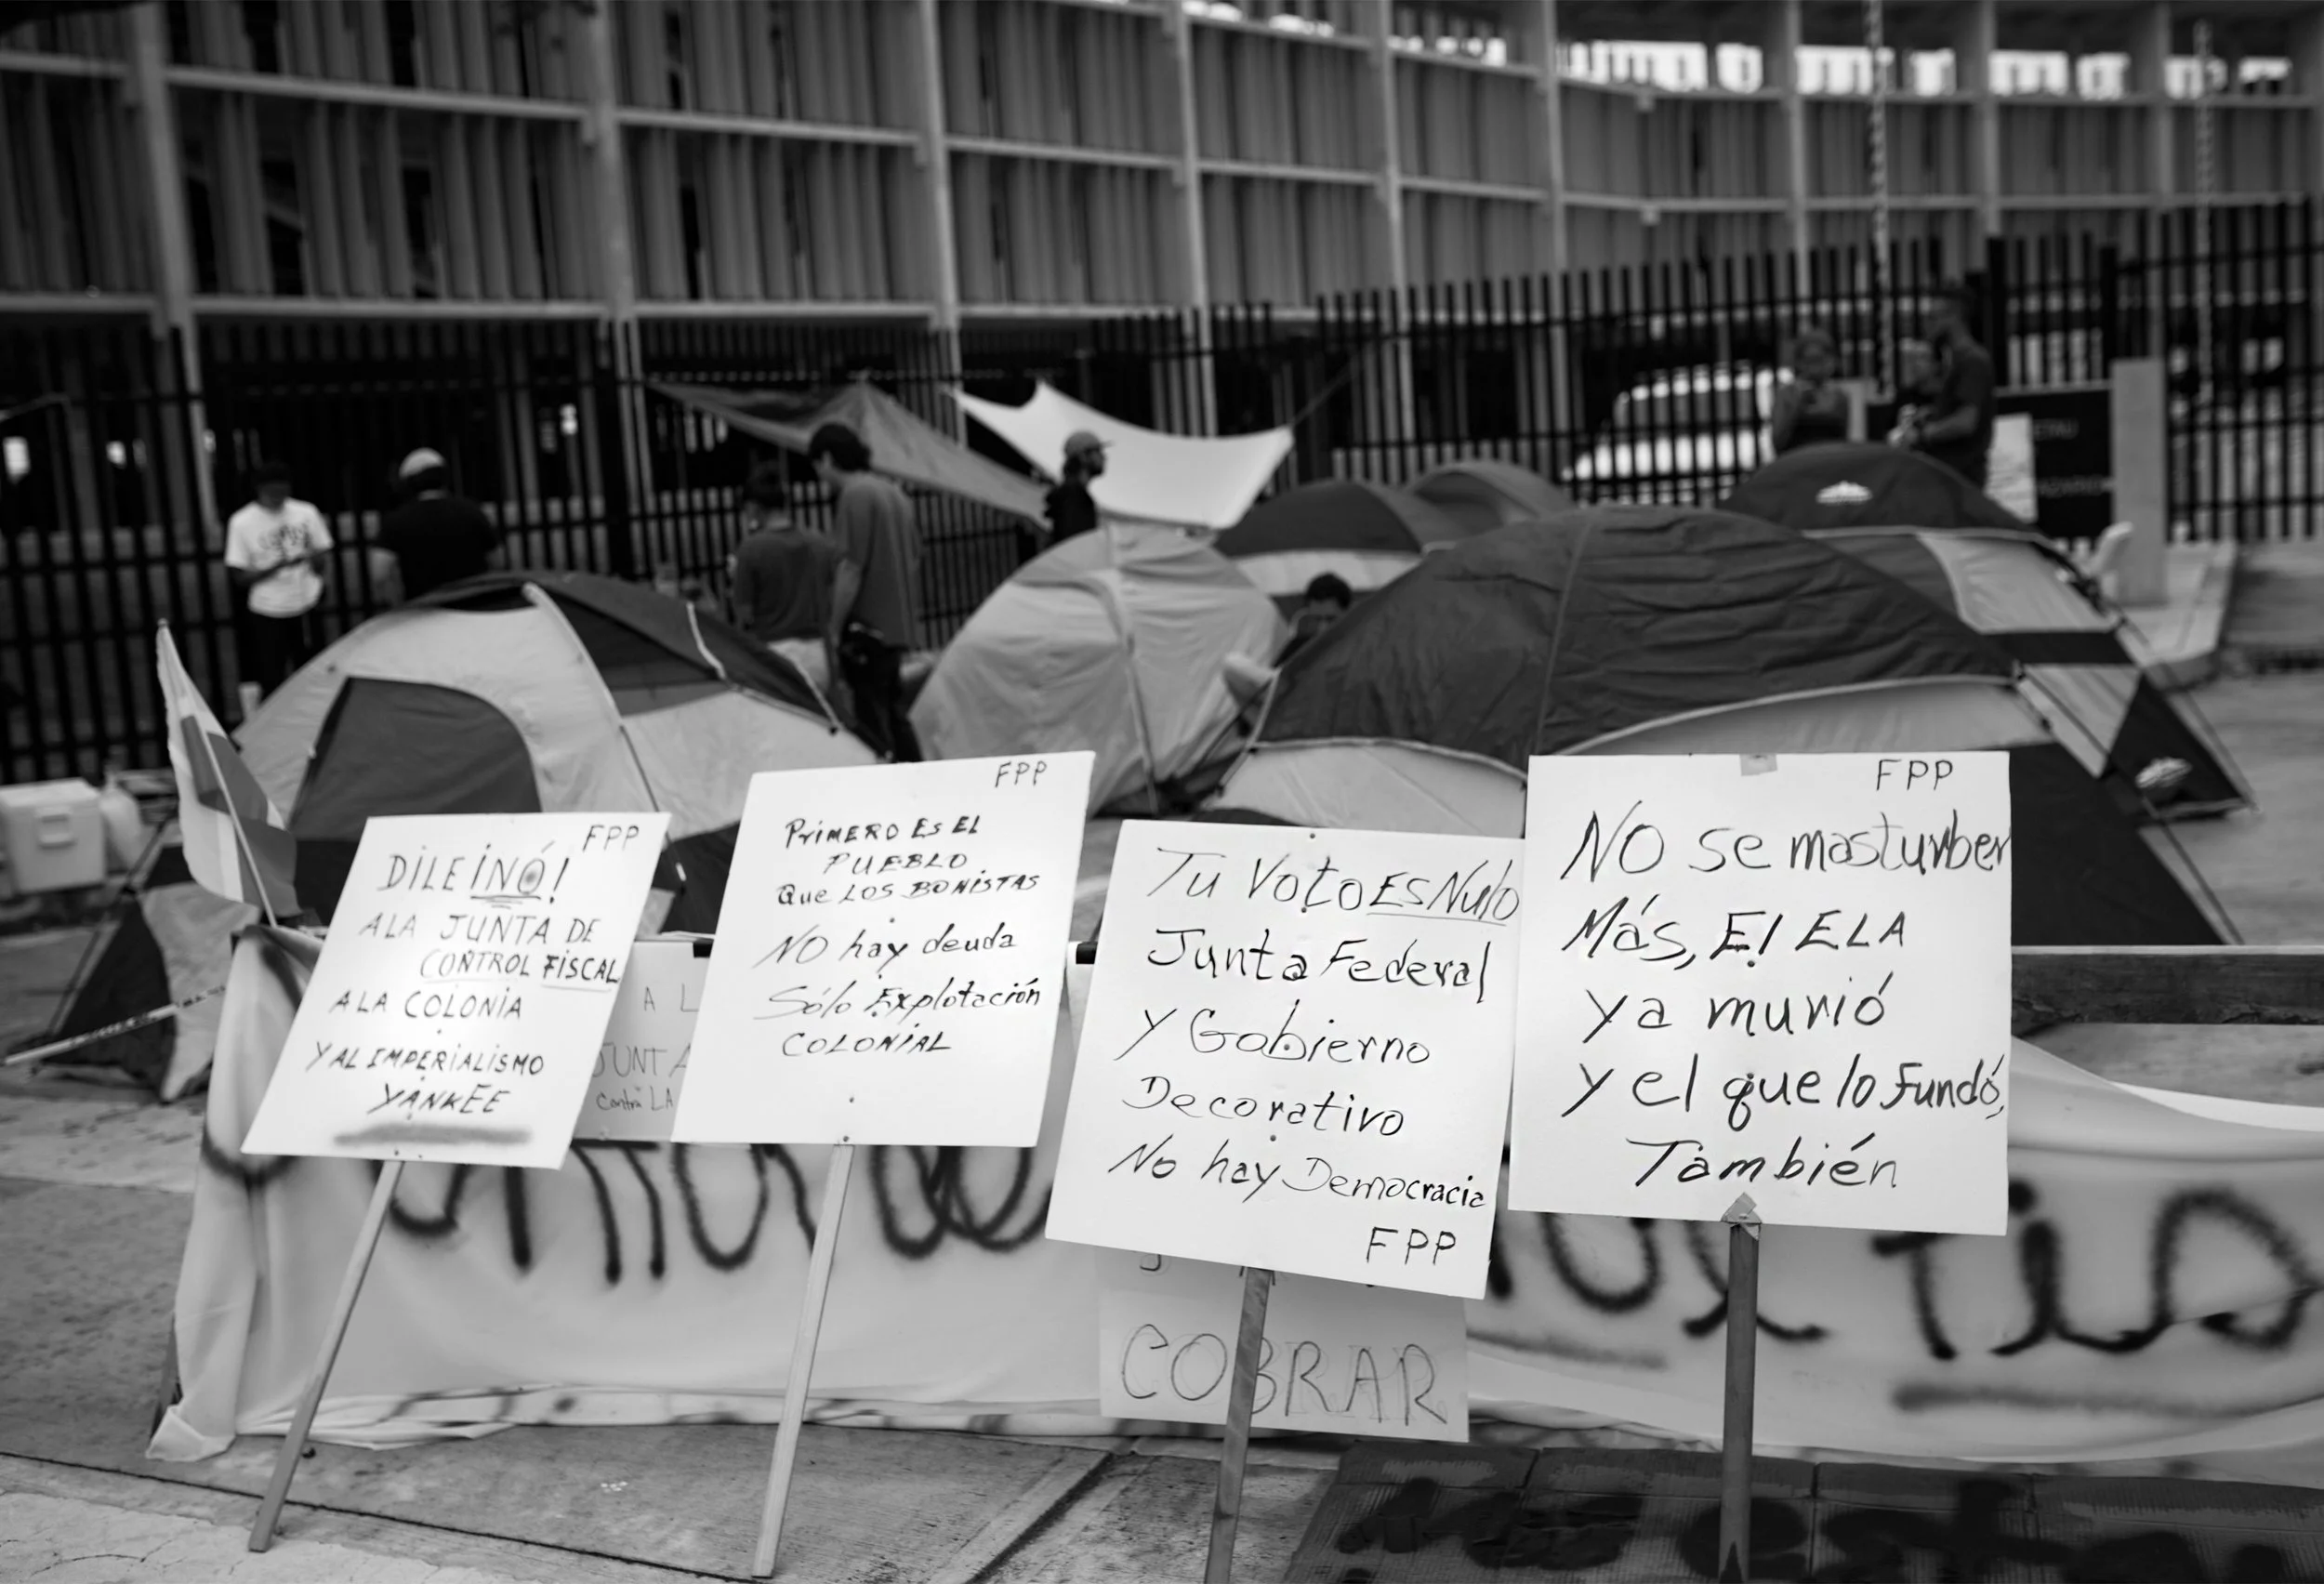 FPP
DILE ¡NÓ!
A LA JUNTA DE
CONTROL FISCAL
A LA COLONIA
Y AL IMPERIALISMO
YANKEE
A L
JUNTA
contra LA
FPP
PriMERO Es EL
PUEBLO
Que LOS BONISTAS
NO hay deuda
Sólo Explotación
COLONIAL
Tu Voto ES Nulo
Junta Federal
Y Gobierno
Decorativo
No hay Democracia
FPP
COBRAR
FPP
NO se masturben
Más, El ELA
ya murió
y el que lo Fundó,
También